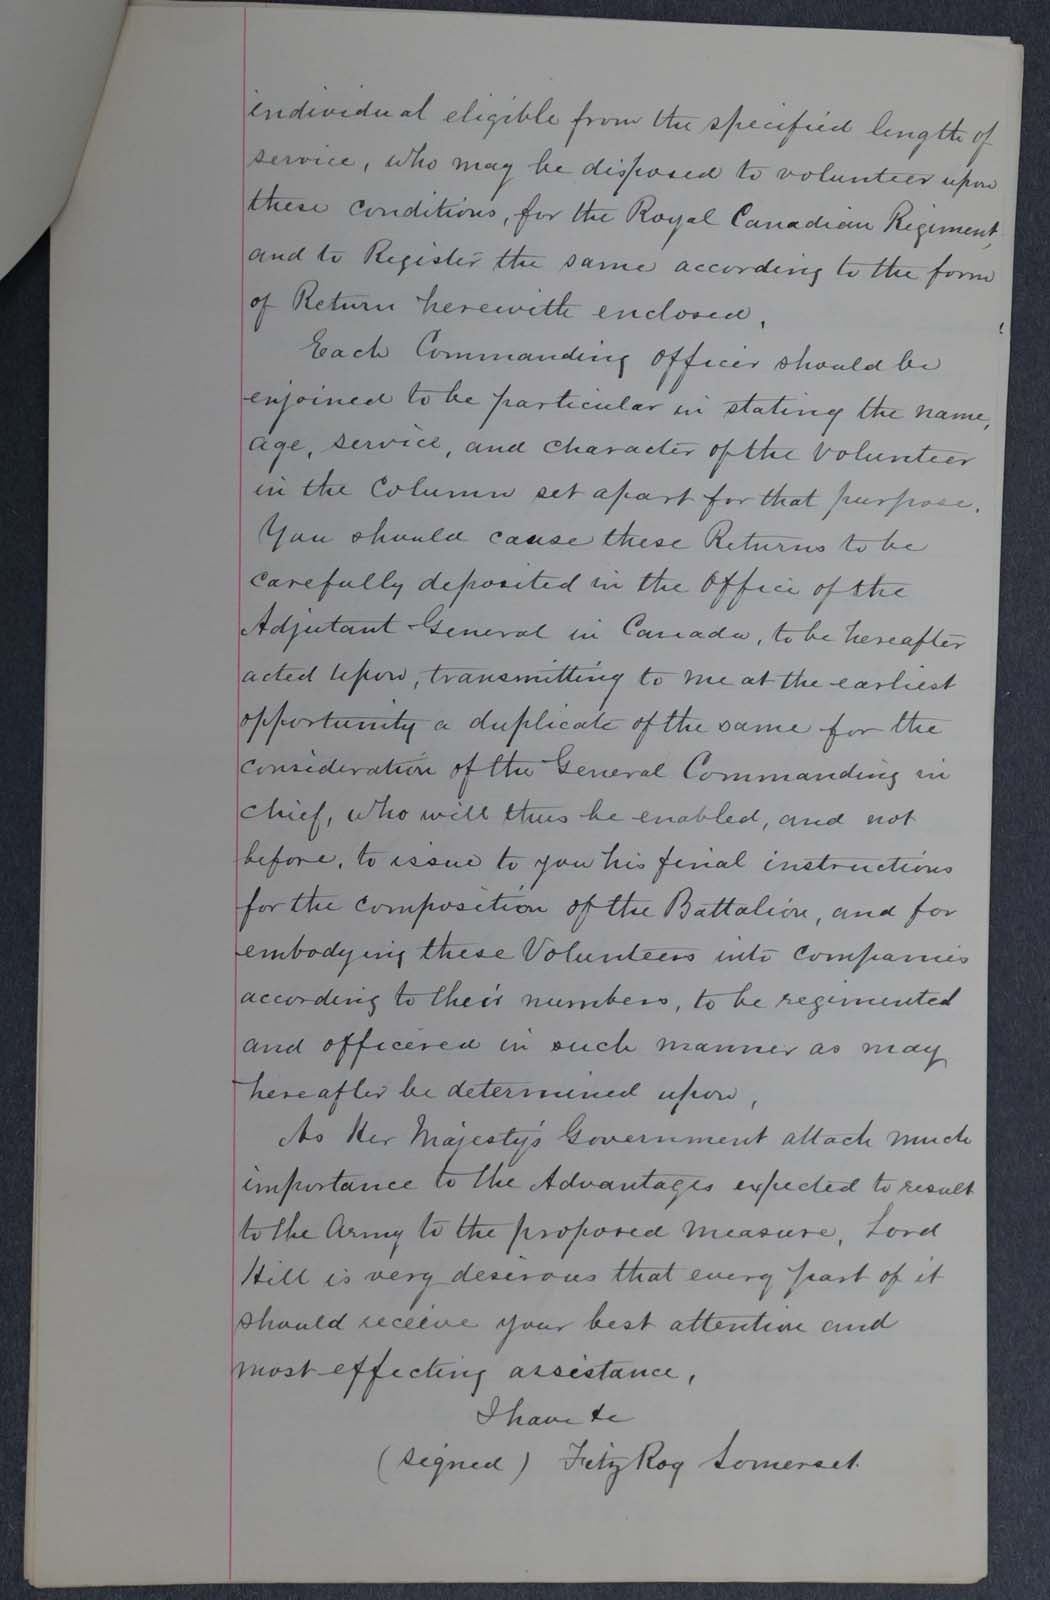 individual eligible from the specified length of
service, who may be disposed to volunteer upon
these conditions, for the Royal Canadian Regiment,
and to Register the same according to the form
of Return herewith enclosed.
Each Commanding Officer should be
enjoined to be particular in stating the name,
age, service, and character of the Volunteer
in the Column set apart for that purpose.
You should cause these Returns to be
carefully deposited in the Office of the
Adjutant General in Canada, to be hereafter
acted upon, transmitting to me at the earliest
opportunity a duplicate of the same for the
consideration of the General Commanding in
Chief, who will thus be enabled, and not
before, to issue to you his final instructions
for the composition of the Battalion, and for
embodying these Volunteers into Companies
according to their numbers, to be regimented
and officered in such manner as may
hereafter be determined upon,
As Her Majesty's Government attach much
importance to the Advantages expected to result
to the Army to the proposed measure, Lord
Hill is very desirous that every part of it
should receive your best attention and
most effecting assistance,
I have &c
(signed) FitzRoy Somerset.